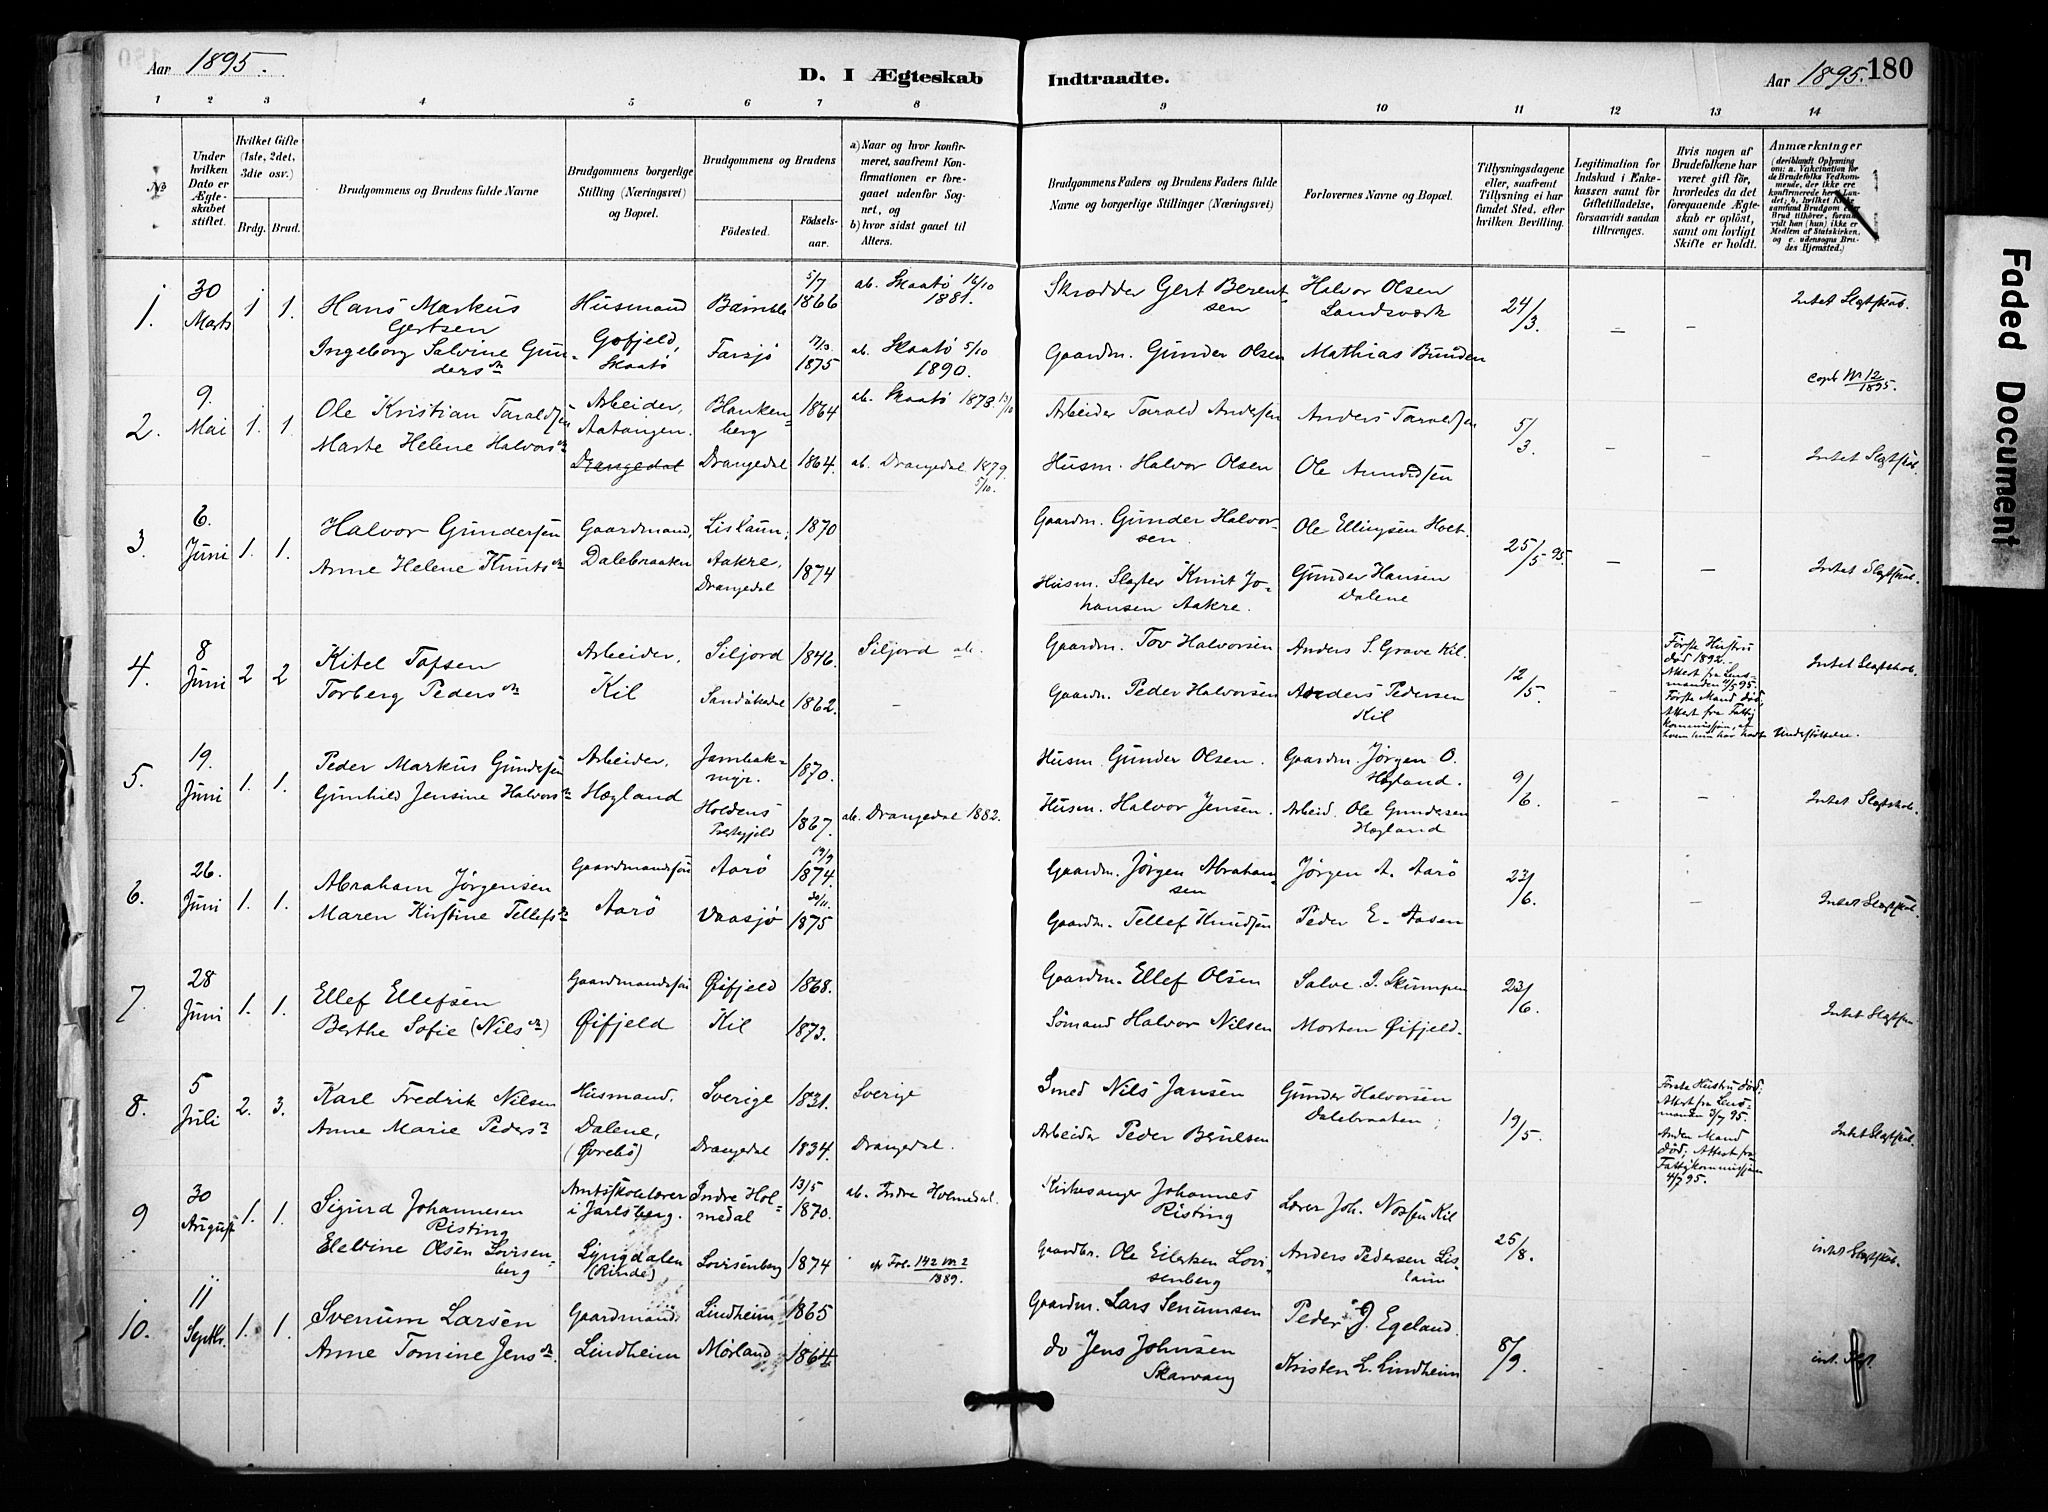 Aar 1895.
D. I Ægteskab Indtraadte.
Aar 1895. 180
1 2 3 4 5 6 7 8 9 10 11 12 13 14
No
Under hvilken Dato er Ægteskabet stiftet.
Hvilket Gifte (1ste, 2det, 3die osv.)
Brdg. Brud.
Brudgommens og Brudens fulde Navne
Brudgommens borgerlige Stilling (Næringsvei) og Bopæl.
Brudgommens og Brudens
Födested. Födselsaar.
a) Naar og hvor konfirmeret, saafremt Konfirmationen er foregaaet udenfor Sognet, og
b) hvor sidst gaaet til Alters.
Brudgommens Faders og Brudens Faders fulde Navne og borgerlige Stillinger (Næringsvei)
Forlovernes Navne og Bopæl.
Tillysningsdagene eller, saafremt Tillysning ei har fundet Sted, efter hvilken Bevilling.
Legitimation for Indskud i Enkekassen samt for Giftetilladelse, forsaavidt saadan tiltrænges.
Hvis nogen af Brudefolkene har været gift för, hvorledes da det foregaaende Ægteskab er oplöst, samt om lovligt Skifte er holdt.
Anmærkninger
1. 30 Marts 1 1.
Hans Markus Gertsen Husmand Bamble 5/7 1866 ab. Skaatø 16/10 1881.
Skrædder Gert Berentsen Halvor Olsen Landsværk 24/3. – – Intet Slegtskab.
Ingeborg Salvine Gundersdr Gofjeld, Skaatø Farsjø 1875 ab. Skaatø 5/10 1890.
Gaardm. Gunder Olsen Mathias Bunden
2. 9. Mai 1. 1.
Ole Kristian Taraldsen Arbeider, Aatangen. Blankenberg 1864 ab. Skaatø 1878. 13/10
Arbeider Tarald Andersen Anders Taraldsen 5/3. – – Copb No 12/1895.
Marte Helene Halvorsdr Drangedal Drangedal 1864. ab. Drangedal 1879. 5/10.
Husm. Halvor Olsen Ole Amundsen Intet Slegtskab.
3. 6. Juni 1. 1.
Halvor Gundersen Gaardmand, Lislaun, 1870
Gaardm. Gunder Halvorsen Ole Ellingsen Holt. 25/5 95. – –
Anne Helene Knutsdr Dalebraaten Aakre, Drangedal 1874
Husm. Slagter Knut Johansen Aakre. Gunder Hansen Dalene Intet Slegtskab.
4. 8 Juni 2 2
Kitel Tofsen Arbeider, Siljord 1846. Siljord ab.
Gaardm. Tov Halvorsen Anders S. Grave Kil. 12/5. – Første Hustru død 1892. Attest fra Lensmanden 11/5 95. Intet Slegtskab.
Torberg Pedersdr Kil Sandøkedal 1862. –
Gaardm. Peder Halvorsen Anders Pedersen Kil Første Mand død, Attest fra Fattigkommissjon, af hvem hun har havt Understøttelse.
5. 19. Juni 1. 1.
Peder Markus Gundersen Arbeider, Jambakmyr. 1870.
Husm. Gunder Olsen. Gaardm. Jørgen O. Høgland. 9/6. – –
Gunhild Jensine Halvorsdr Høgland Holdens Præstegjeld 1867. ab. Drangedal 1882.
Husm. Halvor Jensen. Arbeid. Ole Gundersen Høgland Intet Slegtskab.
6. 26. Juni 1. 1.
Abraham Jørgensen Gaardmandssøn Aarø 19/9 1874.
Gaardm. Jørgen Abrahamsen Jørgen A. Aarø 23/6. –
Maren Kirstine Tellefsdr Aarø Vaasjø 30/11. 1875
Gaardm. Tellef Knudsen Peder E. Aasen Intet Slegtskab.
7. 28 Juni 1. 1.
Ellef Ellefsen Gaardmandssøn Øifjeld 1868.
Gaardm. Ellef Olsen Salve J. Skumpen 23/6
Berthe Sofie (Nilsdr) Øifjeld Kil 1873.
Sømand Halvor Nilsen Morten Øifjeld. Intet Slegtskab
8. 5 Juli 2. 3.
Karl Fredrik Nilsen Husmand, Sverige 1831. Sverige
Smed Nils Jansen Gunder Halvorsen Dalebraaten; 19/5. Første Hustru død; Attest fra Lensmanden 3/7 95.
Anne Marie Pedersdr Dalene, (Øvrebø) Drangedal 1834. Drangedal.
Arbeider Peder Beruldsen Anden Mand død; Attest fra Fattigkommissjonen 4/7 95. Intet Slegtskab.
9 30 August 1. 1.
Sigurd Johannesen Risting Amtsskolelærer i Jarlsberg. Indre Holmedal 13/5 1870. ab. Indre Holmedal.
Kirkesanger Johannes Risting Lærer Joh. Nossen Kil 25/8.
Eleltine Olsen Lovisenberg Lyngdalen (Rinde) Lovisenberg 1874 cfr Fol. 142 No 2/1889.
Gaardbr. Ole Eilertsen Lovisenberg Anders Pedersen Lislaun intet Slegtskab.
10. 11 Septbr. 1. 1.
Svenum Larsen Gaardmand Lindheim 1865
Gaardm. Lars Senumsen Peder J. Egeland. 8/9. – –
Anne Tomine Jensdr Lindheim Mørland 1864.
do Jens Johnsen Skarvang Kristen L. Lindheim int. Slgt.
Faded Document